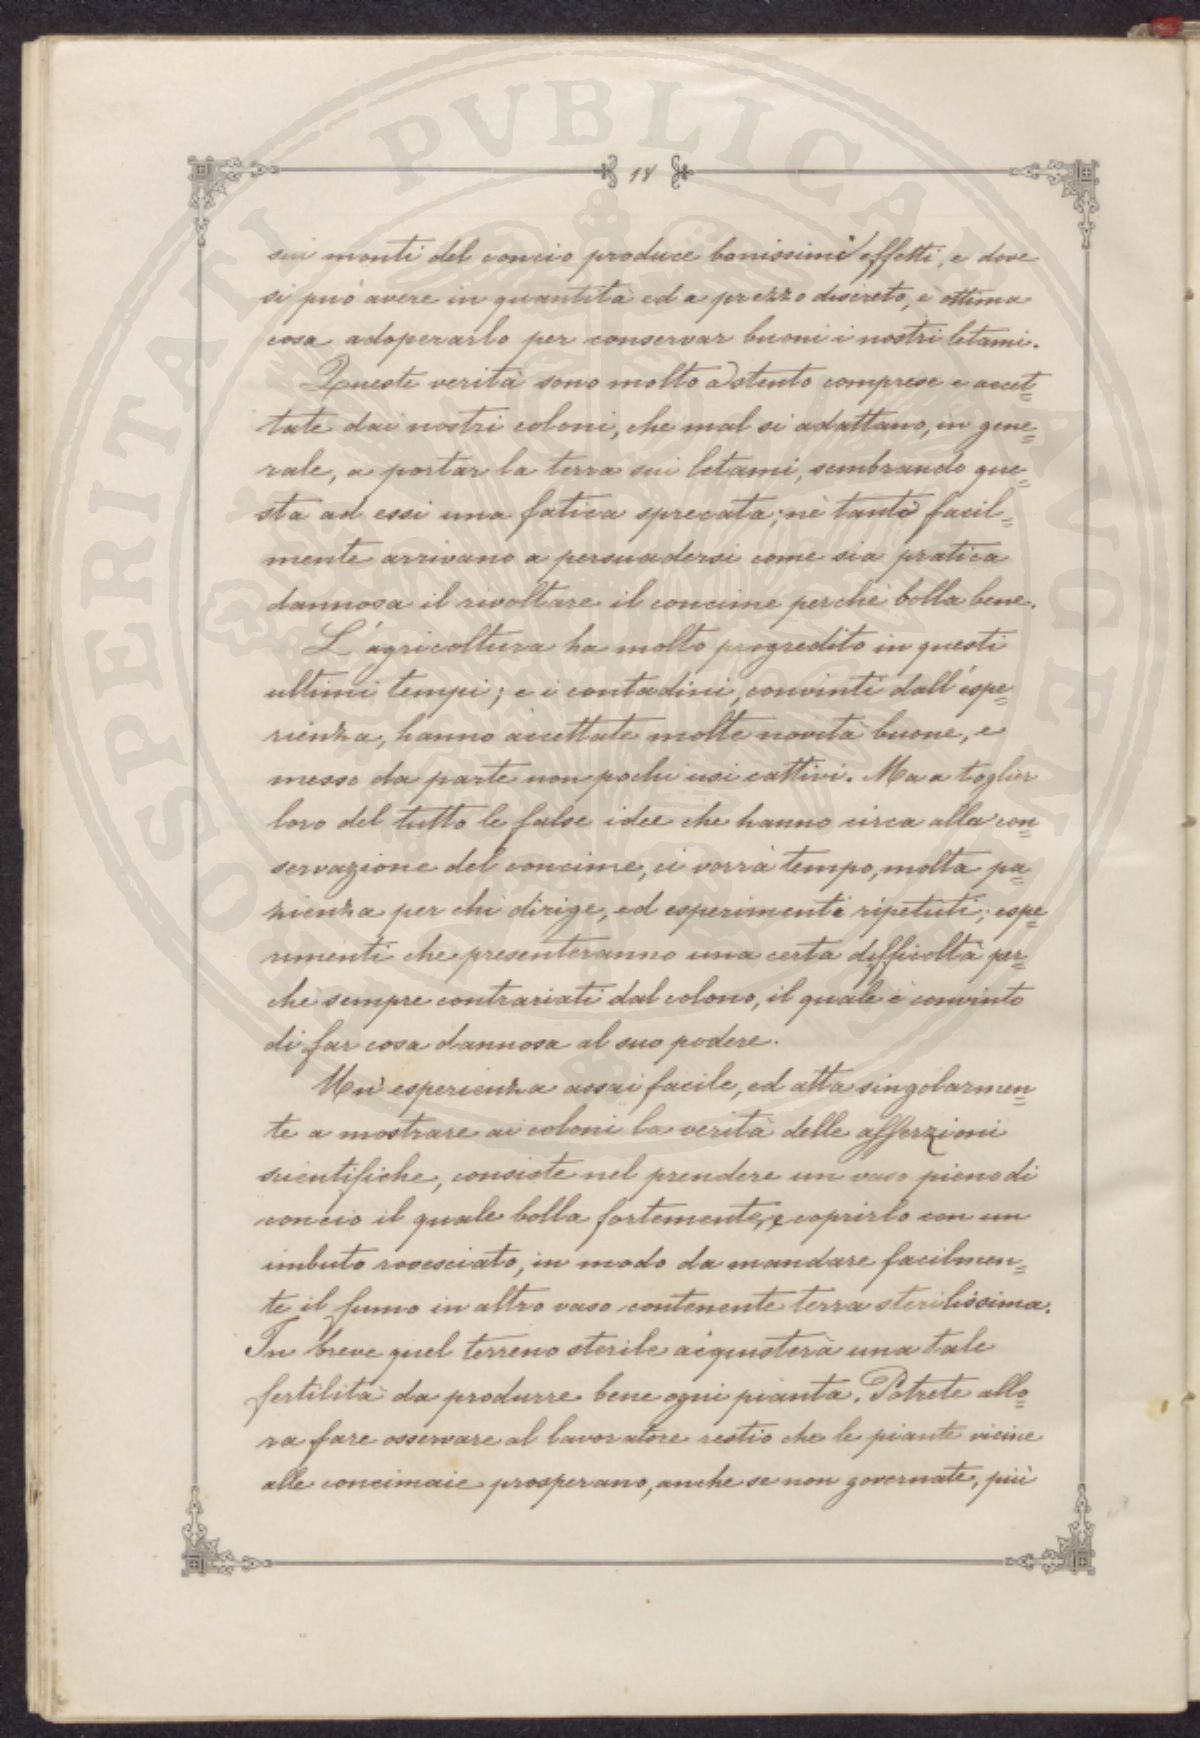 18
sui monti del concio produce bonissimi effetti, e dove
si può avere in quantità ed a prezzo discreto, è ottima
cosa adoperarlo per conservar buoni i nostri letami.
Queste verità sono molto a stento comprese e accet=
tate dai nostri coloni, che mal si adattano, in gene=
rale, a portar la terra sui letami, sembrando que=
sta ad essi una fatica sprecata; nè tanto facil=
mente arrivano a persuadersi come sia pratica
dannosa il rivoltare il concime perchè bolla bene.
L'agricoltura ha molto progredito in questi
ultimi tempi; e i contadini, convinti dall'espe=
rienza, hanno accettate molte novità buone, e
messo da parte non pochi usi cattivi. Ma a toglier
loro del tutto le false idee che hanno circa alla con=
servazione del concime, ci vorrà tempo, molta pa=
zienza per chi dirige, ed esperimenti ripetuti; espe=
rimenti che presenteranno una certa difficoltà per=
chè sempre contrariati dal colono, il quale è convinto
di far cosa dannosa al suo podere.
Un' esperienza assai facile, ed atta singolarmen=
te a mostrare ai coloni la verità delle asserzioni
scientifiche, consiste nel prendere un vaso pieno di
concio il quale bolla fortemente, e coprirlo con un
imbuto rovesciato, in modo da mandare facilmen=
te il fumo in altro vaso contenente terra sterilissima.
In breve quel terreno sterile acquisterà una tale
fertilità da produrre bene ogni pianta. Potrete allo=
ra fare osservare al lavoratore restio che le piante vicine
alle concimaie prosperano, anche se non governate, più
PROSPERITATI PUBLICAE AUGENDAE